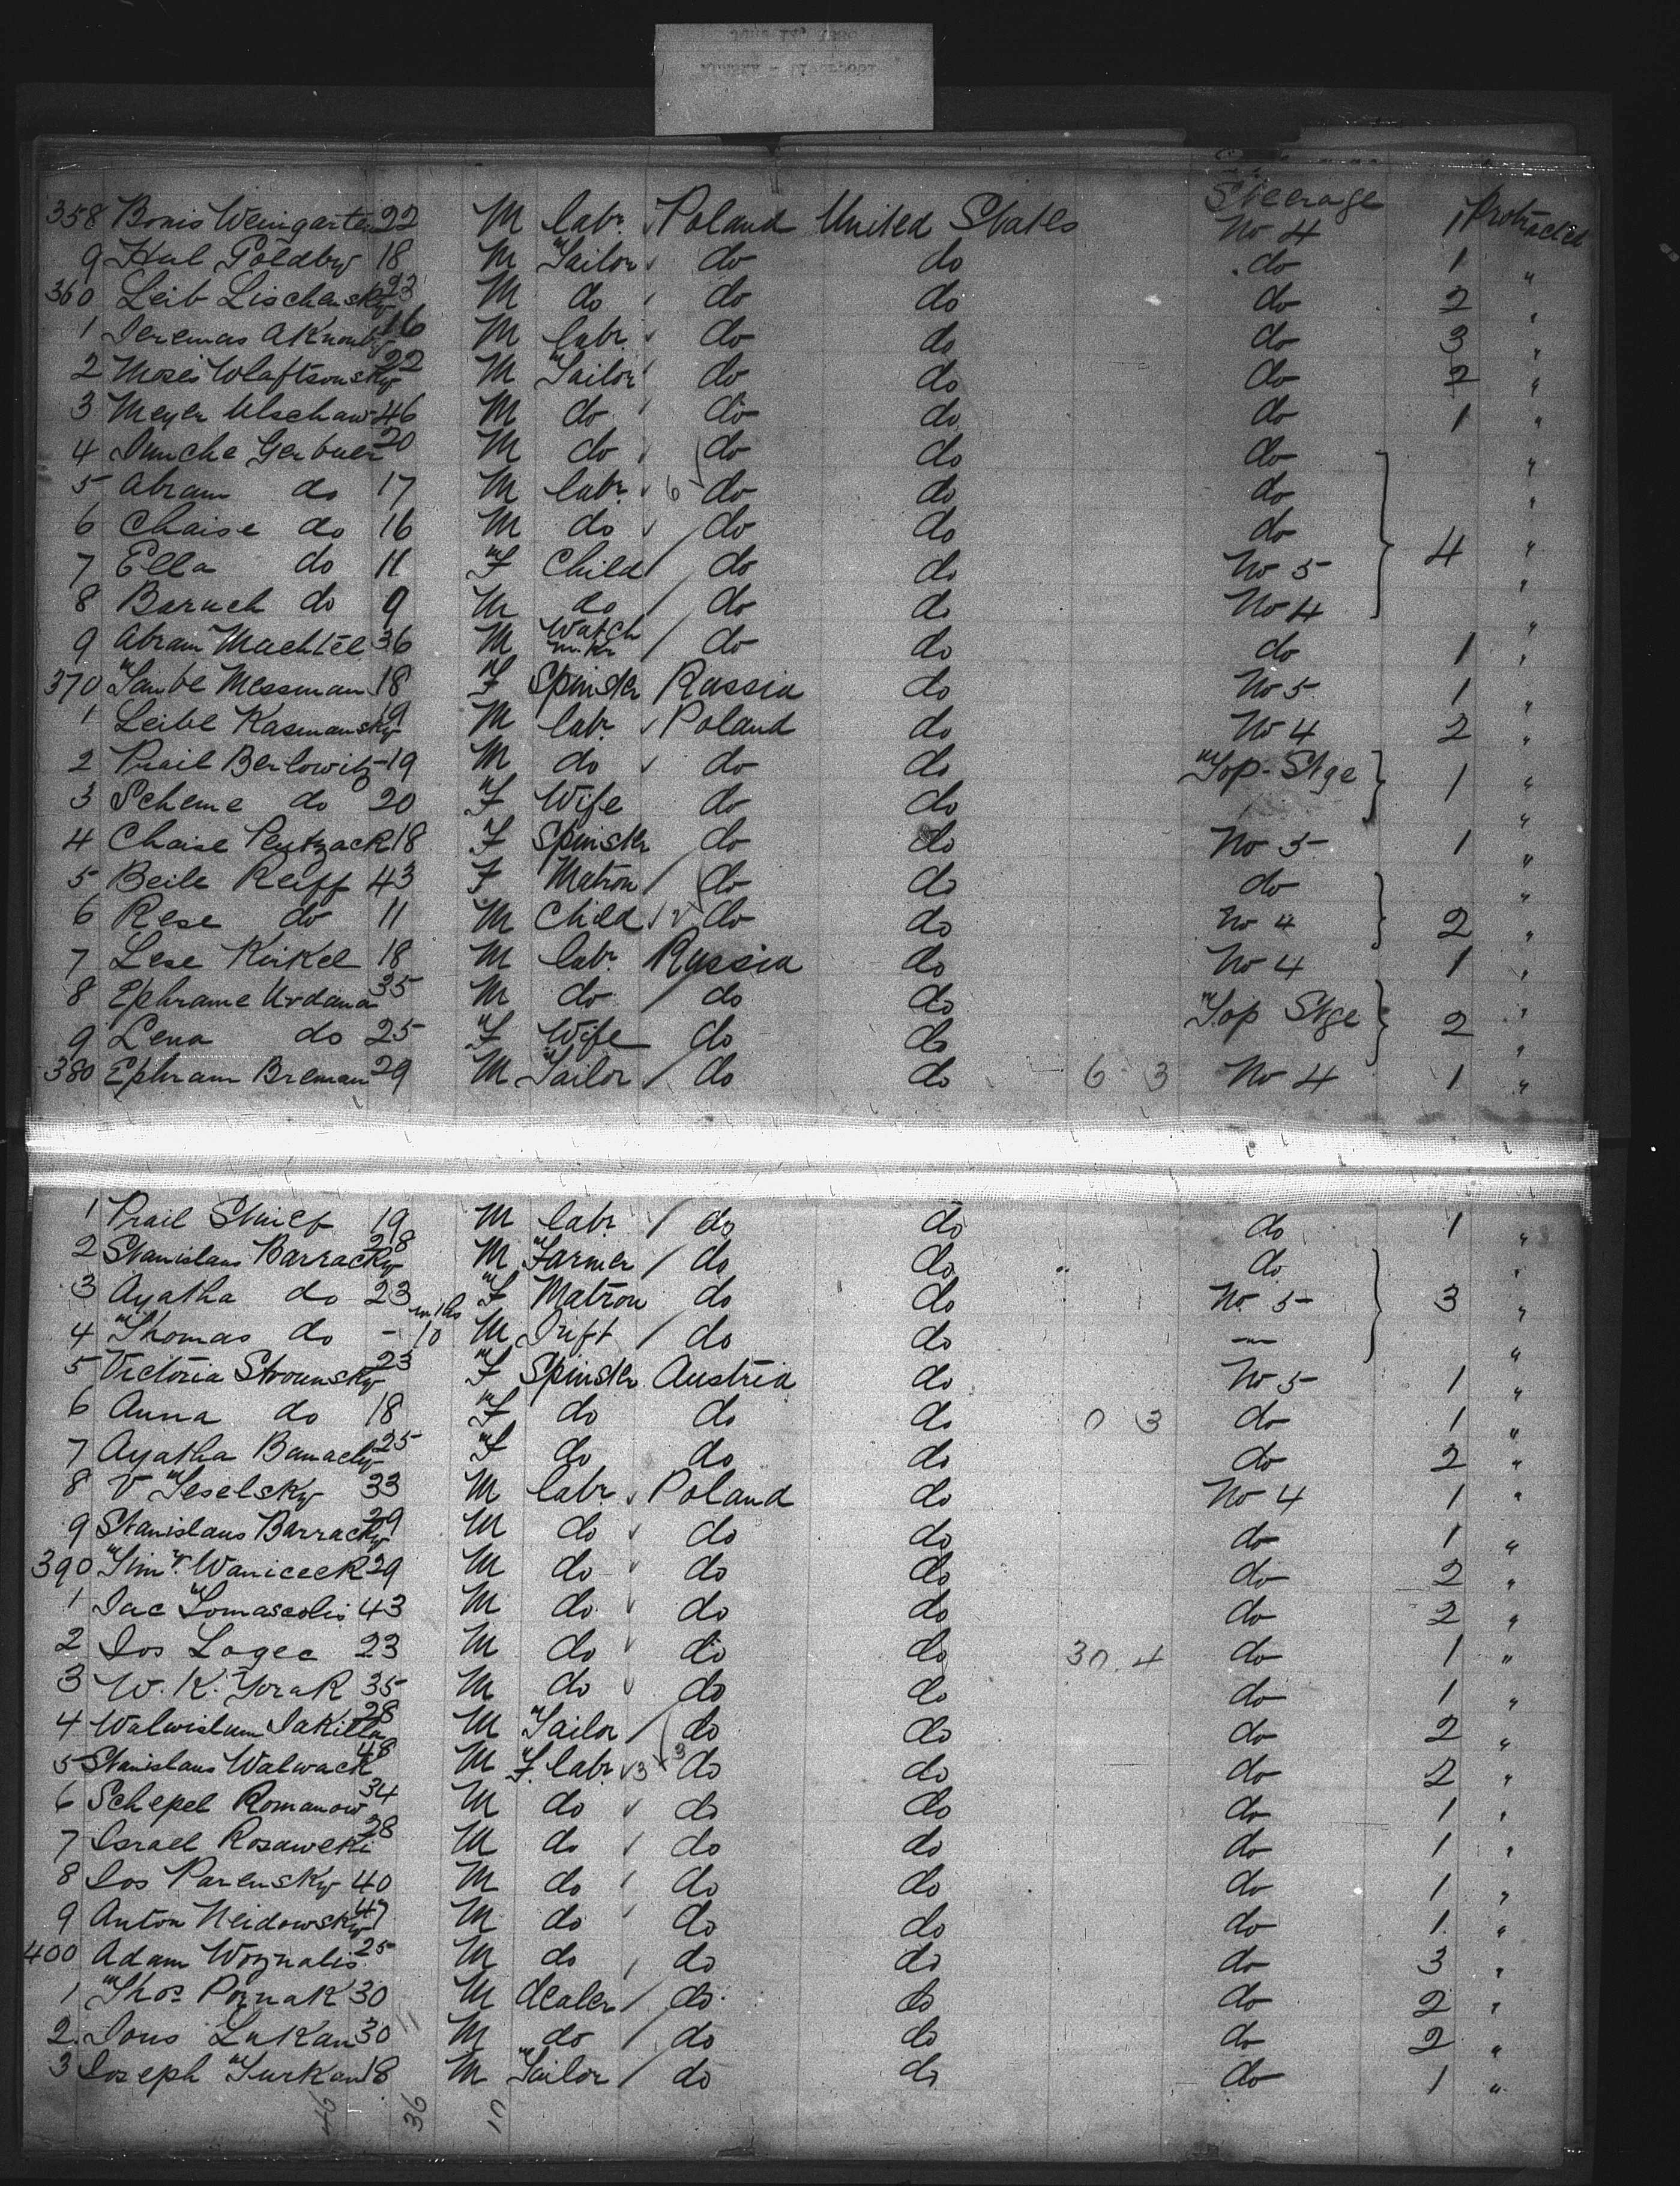 Steerage
358 Bonis Weingarten 22 M labr. Poland United States No 4 1 Protracted
9 Hul Poldby 18 M Tailor do do do 1 "
360 Leib Lischensky 23 M do do do do 2 "
1 Jeremas 16 M labr. do do do 3 "
2 Moses Wlaftsonsky 22 M Tailor do do do 2 "
3 Meyer Ulschaw 46 M do do do do 1 "
4 Gerbner 20 M do do do do "
5 Abram do 17 M labr. 6 do do do "
6 Chaise do 16 M do do do do 4 "
7 Ella do 11 F Child do do No 5 "
8 Baruch do 9 M do do do No 4 "
9 Abram Machtel 36 M Watch mkr do do do 1 "
370 Taube Messman 18 F Spinster Russia do No 5 1 "
1 Leibe Kasmansky 19 M labr. Poland do No 4 2 "
2 Prail Berlowitz 19 M do do do Top-Stge 1 "
3 Scheme do 20 F Wife do do "
4 Chaise Pentzack 18 F Spinster do do No 5 1 "
5 Beile Reiff 43 F Matron do do do "
6 Rese do 11 M Child 2 do do No 4 2 "
7 Lese Kinkel 18 M labr. Russia do No 4 1 "
8 Ephrame Urdana 35 M do do do Top Stge 2 "
9 Lena do 25 F Wife do do "
380 Ephram Breman 29 M Tailor do do 6 3 No 4 1 "
1 Prail 19 M labr. do do do 1 "
2 Stanislaus Barracky 28 M Farmer do do do "
3 Agatha do 23 F Matron do do No 5 3 "
4 Thomas do - 10 mths M Inft do do — "
5 Victoria Strounsky 23 F Spinster Austria do No 5 1 "
6 Anna do 18 F do do do 0 3 do 1 "
7 Agatha Banachy 25 F do do do do 2 "
8 V Teselsky 33 M labr. Poland do No 4 1 "
9 Stanislaus Barracky 29 M do do do do 1 "
390 Timy. Waniceck 29 M do do do do 2 "
1 Jac Tomascolis 43 M do do do do 2 "
2 Jos Logec 23 M do do do 30. 4 do 1 "
3 W. K. Yorak 35 M do do do do 1 "
4 Walwislum Jakilla 28 M Tailor do do do 2 "
5 Stanislaus Walwack 48 M F. labr. 3 3 do do do 2 "
6 Schepel Romanow 34 M do do do do 1 "
7 Israel Rosaweki 28 M do do do do 1 "
8 Jos Parensky 40 M do do do do 1 "
9 Anton Neidowsky 47 M do do do do 1. "
400 Adam Woznalis 25 M do do do do 3 "
1 Thos Poznak 30 M dealer do do do 2 "
2 Jons Lukan 30 11 M do do do do 2 "
3 Joseph Turkan 18 M Tailor do do do 1 "
46 36 10